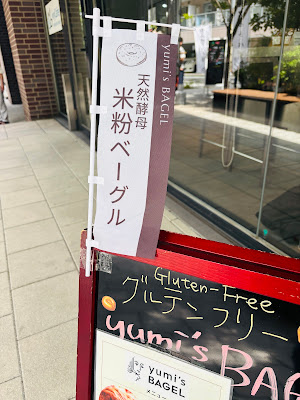 yumi's BAGEL
天然酵母
米粉ベーグル
Gluten-Free
グルテンフリー
yumi's BA
yumi's
BAGEL
メニュー